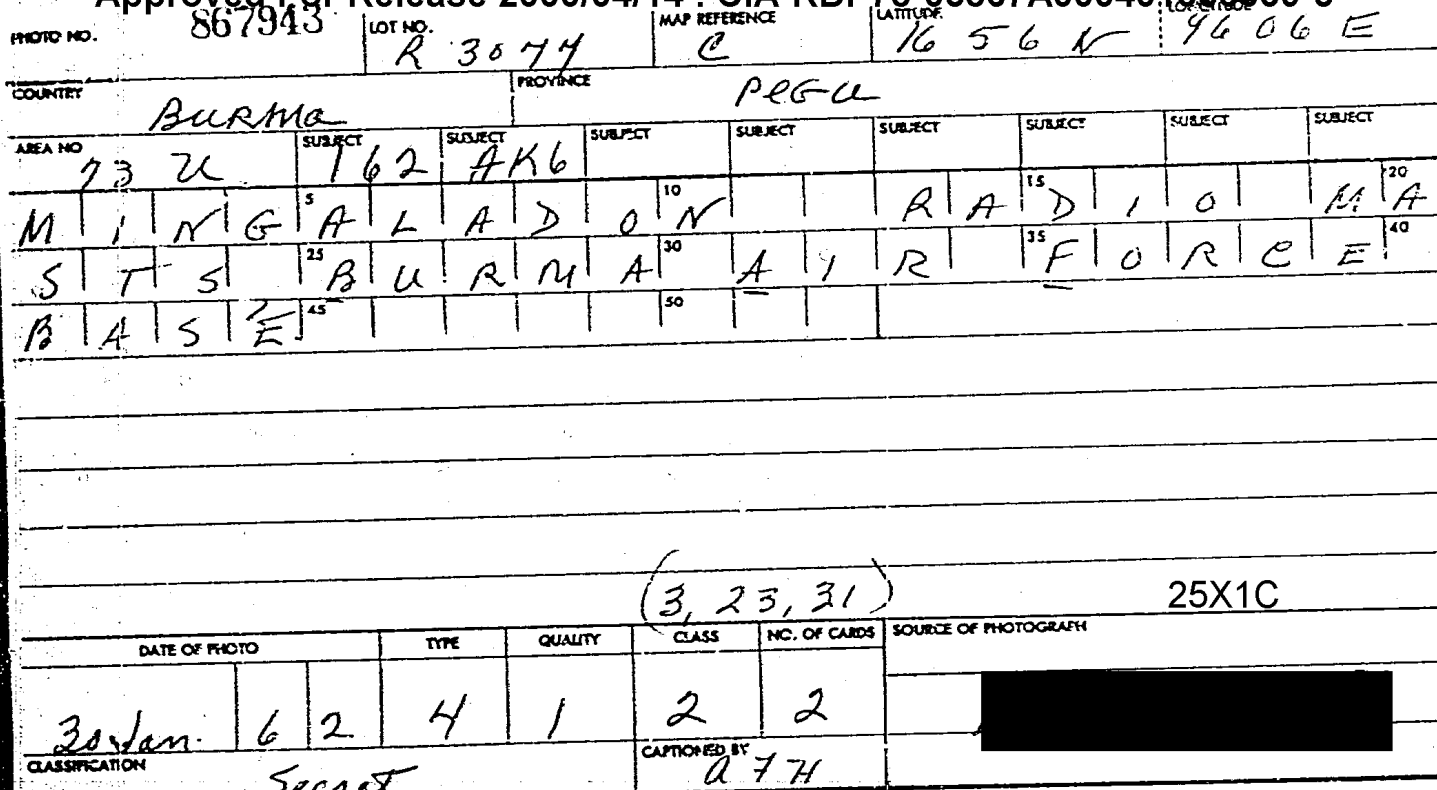 Release 2000/04/14 : CIA-RDP
PHOTO NO. 867943 LOT NO. R 3077 MAP REFERENCE C LATITUDE 16 56 N 96 06 E
COUNTRY Burma PROVINCE PEGU
AREA NO 73 U SUBJECT 162 SUBJECT AK6 SUBJECT SUBJECT SUBJECT SUBJECT SUBJECT SUBJECT
MING 5 ALADO 10 N RA 15 DIO M 20 A
STS 25 BURMA 30 AIR 35 FORCE 40
BASE 45 50
(3, 23, 31) 25X1C
DATE OF PHOTO TYPE QUALITY CLASS NO. OF CARDS SOURCE OF PHOTOGRAPH
30 Jan. 6 2 4 1 2 2
CLASSIFICATION Secret CAPTIONED BY